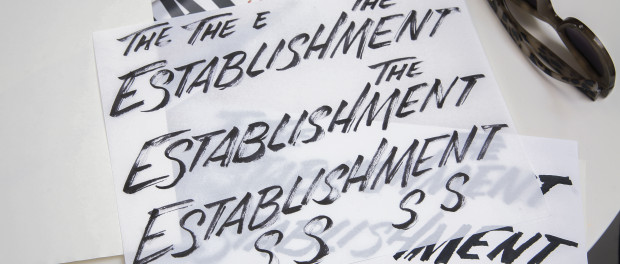 THE THE E THE
ESTABLISHMENT
THE
ESTABLISHMENT
ESTABLISHMENT
S S
S S
MENT